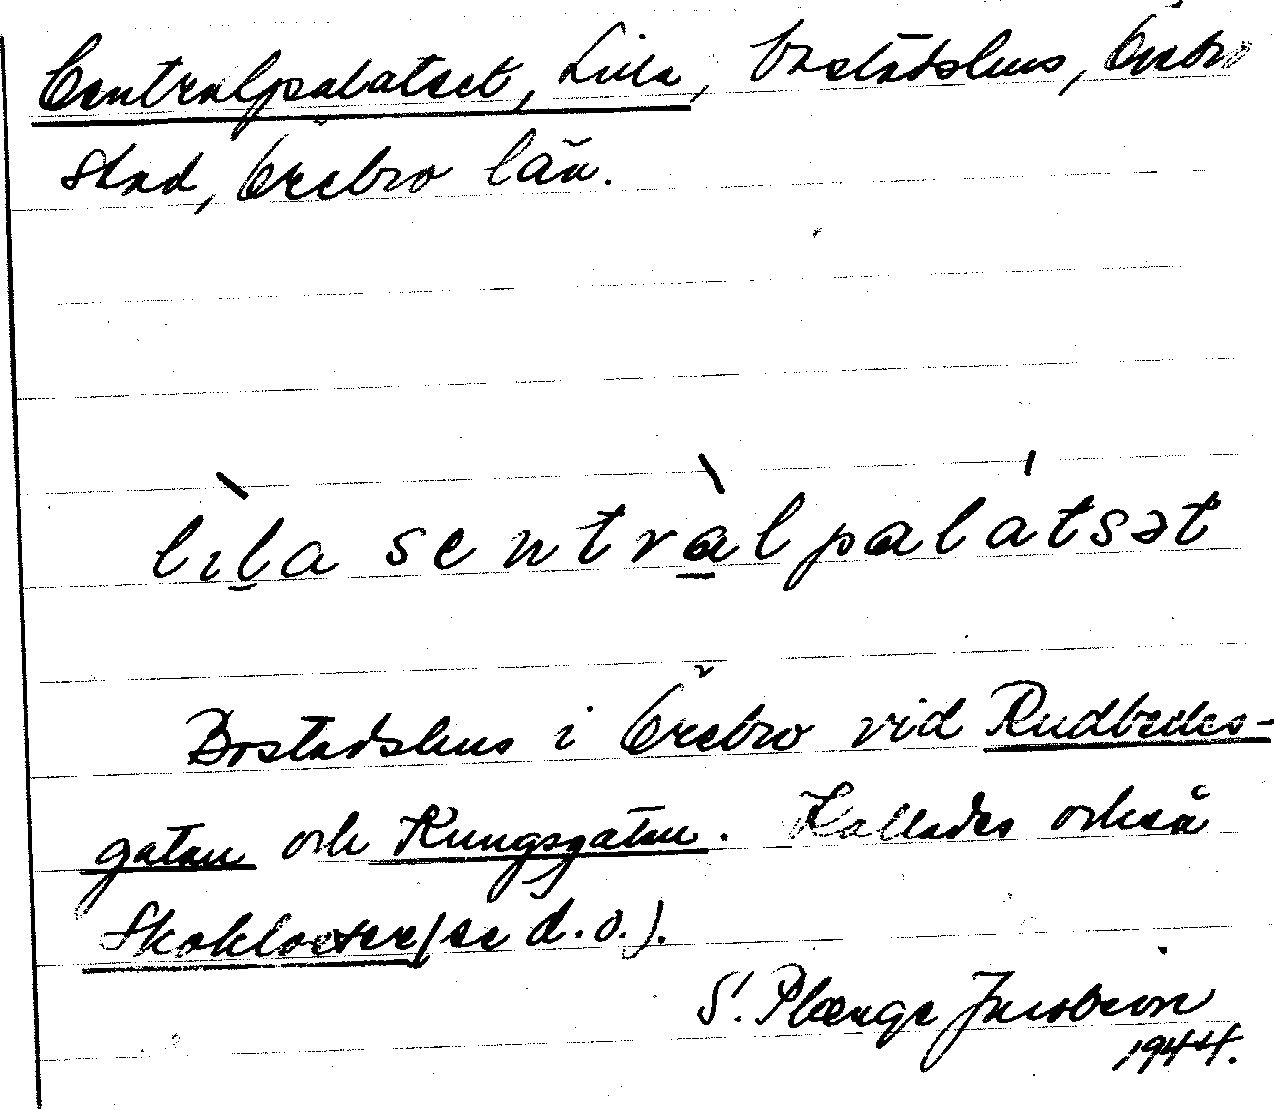 Centralpalatset, Lilla, Bostadshus, Örebro
stad, Örebro län.
lìḷa sentràlpalátsət
Bostadshus i Örebro vid Rudbecks-
gatan och Kungsgatan. Kallades också
Skokloster (se d.o.).
S. Plænge Jacobson
1944.